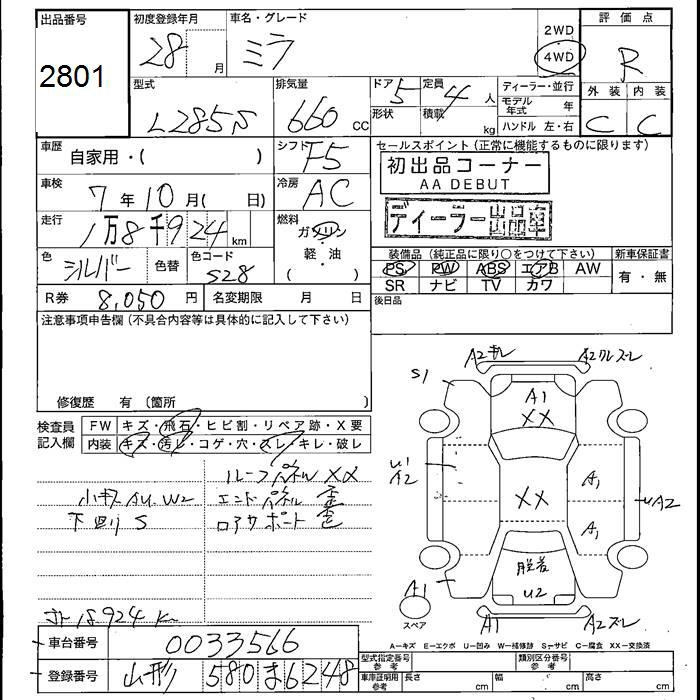 出品番号
2801
初度登録年月
28 月
車名・グレード
ミラ
2WD
4WD
評価点
R
外装 内装
C C
型式
L285S
排気量
660 cc
ドア形状
5
定員積載
4 人
kg
ディーラー・並行
モデル年式 年
ハンドル 左・右
車歴
自家用・( )
シフト
F5
セールスポイント (正常に機能するものに限ります)
初出品コーナー
AA DEBUT
ディーラー出品車
車検
7 年 10 月 ( 日)
冷房
AC
走行
1万8千924 km
燃料
ガソリン
軽・油
( )
色
シルバー
色替
色コード
S28
装備品 (純正品に限り○をつけて下さい)
PS PW ABS エアB AW
SR ナビ TV カワ
新車保証書
有・無
R券 8,050 円
名変期限 月 日
後日品
注意事項申告欄 (不具合内容等は具体的に記入して下さい)
修復歴 有 〔箇所 〕
検査員記入欄
FW キズ・飛石・ヒビ割・リペア跡・X要
内装 キズ・汚レ・コゲ・穴・スレ・キレ・破レ
ルーフパネル XX
小キズ AU. W2
エンドパネル 歪
下回り S
ロアサポート 歪
18924 K
A2キレ A2ワレズレ
S1
A1
XX
U1
A2
A1
XX
UA2
A1
脱着
U2
A1
スペア
A1 A2ズレ
A−キズ E−エクボ U−凹み W−補修跡 S−サビ C−腐食 XX−交換済
車台番号
0033566
登録番号
山形 580 ま 6248
型式指定番号 参考
類別区分番号 参考
車庫証明用 参考
長さ cm
幅 cm
高さ cm